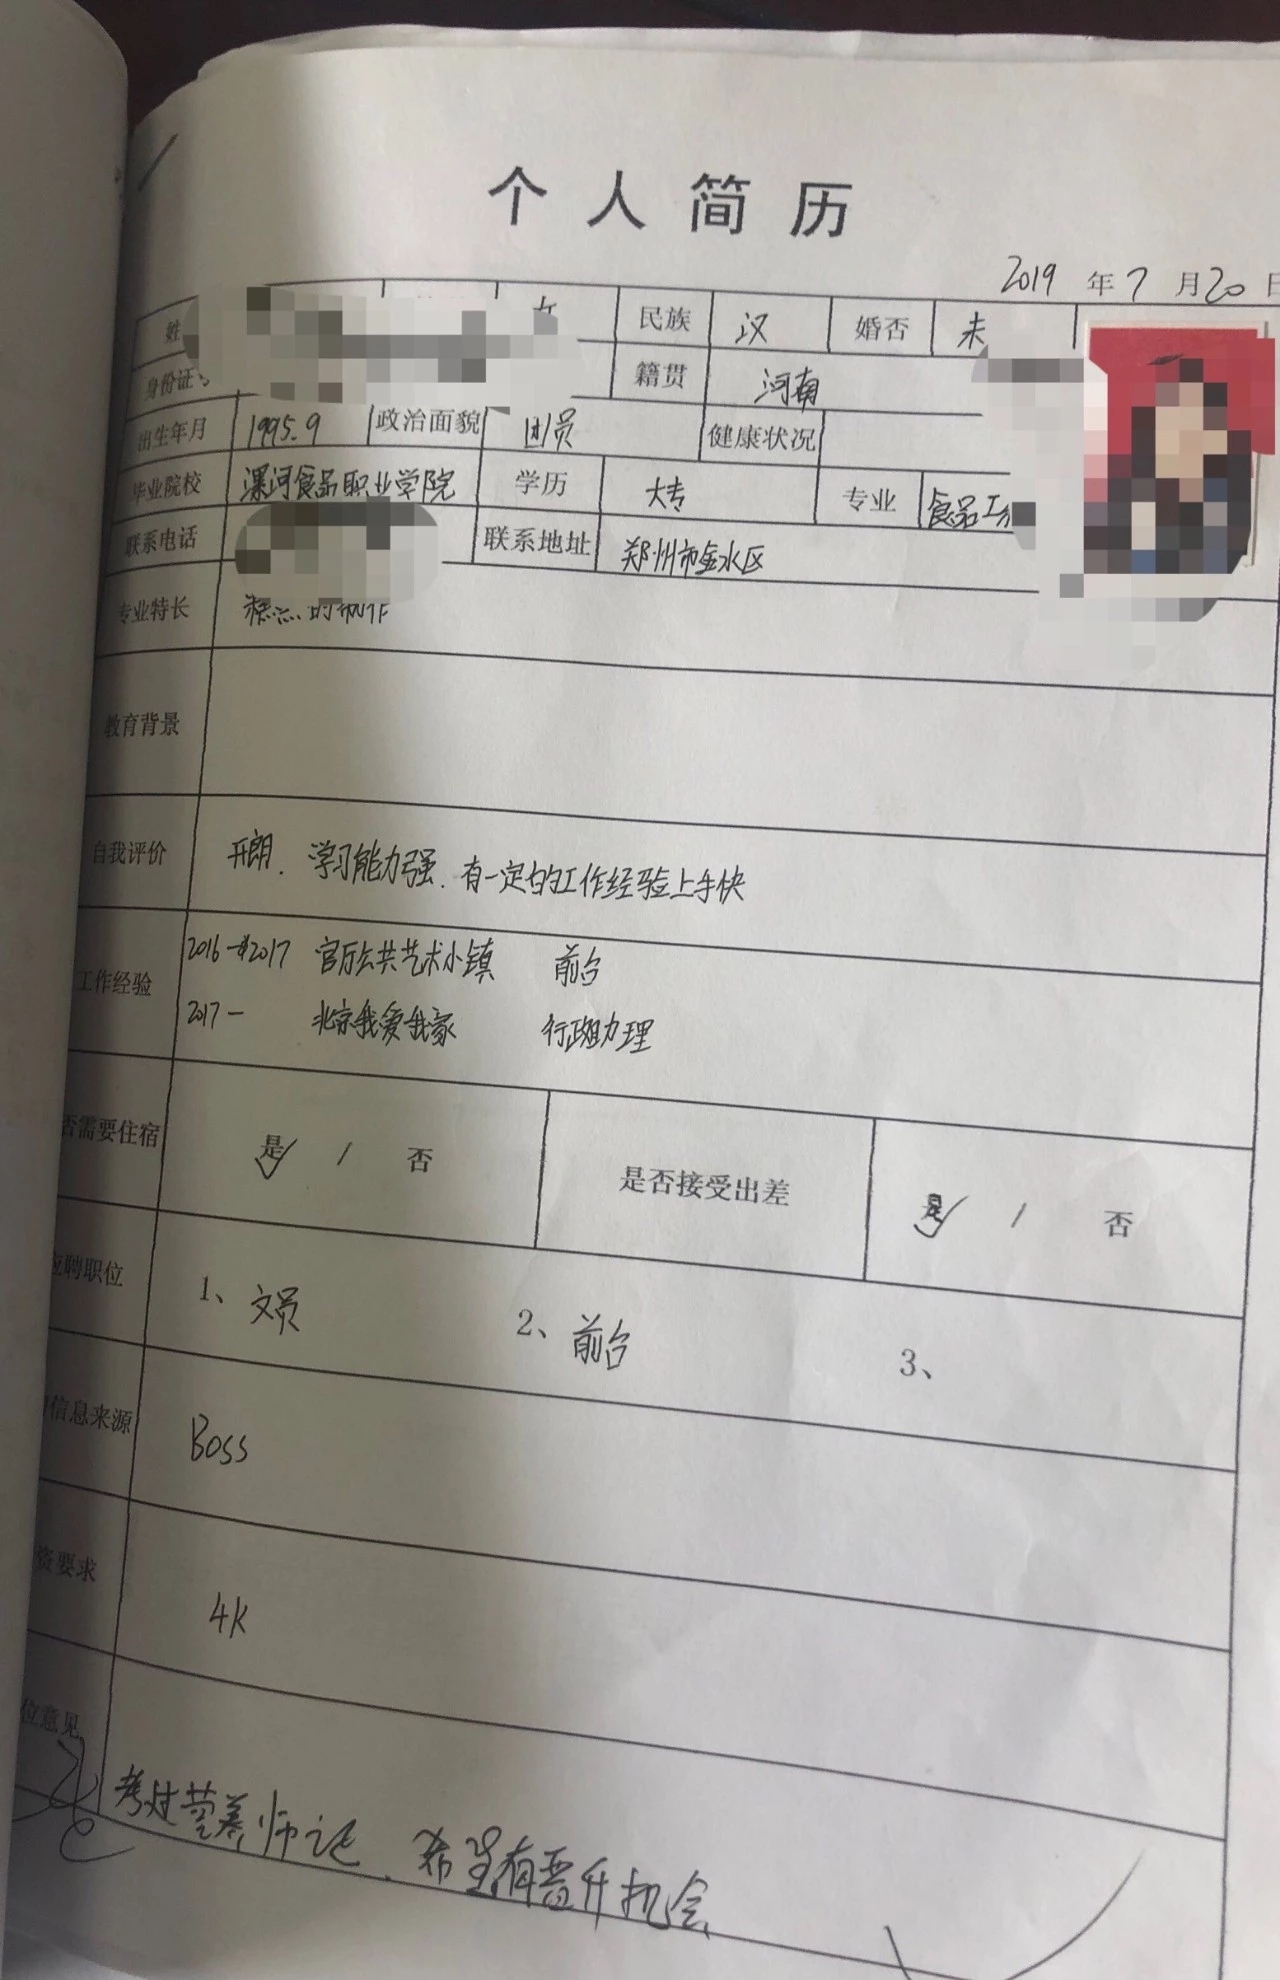 个人简历
2019年7月20日
姓 女 民族 汉 婚否 未
身份证 籍贯 河南
出生年月 1995.9 政治面貌 团员 健康状况
毕业院校 漯河食品职业学院 学历 大专 专业 食品工
联系电话 联系地址 郑州市金水区
专业特长 糕点的制作
教育背景
自我评价 开朗. 学习能力强. 有一定的工作经验上手快
工作经验 2016-2017 官厅公共艺术小镇 前台
2017- 北京我爱我家 行政助理
否需要住宿 是 / 否 是否接受出差 是 / 否
应聘职位 1、文员 2、前台 3、
信息来源 Boss
资要求 4K
位意见
考过营养师证. 希望有晋升机会